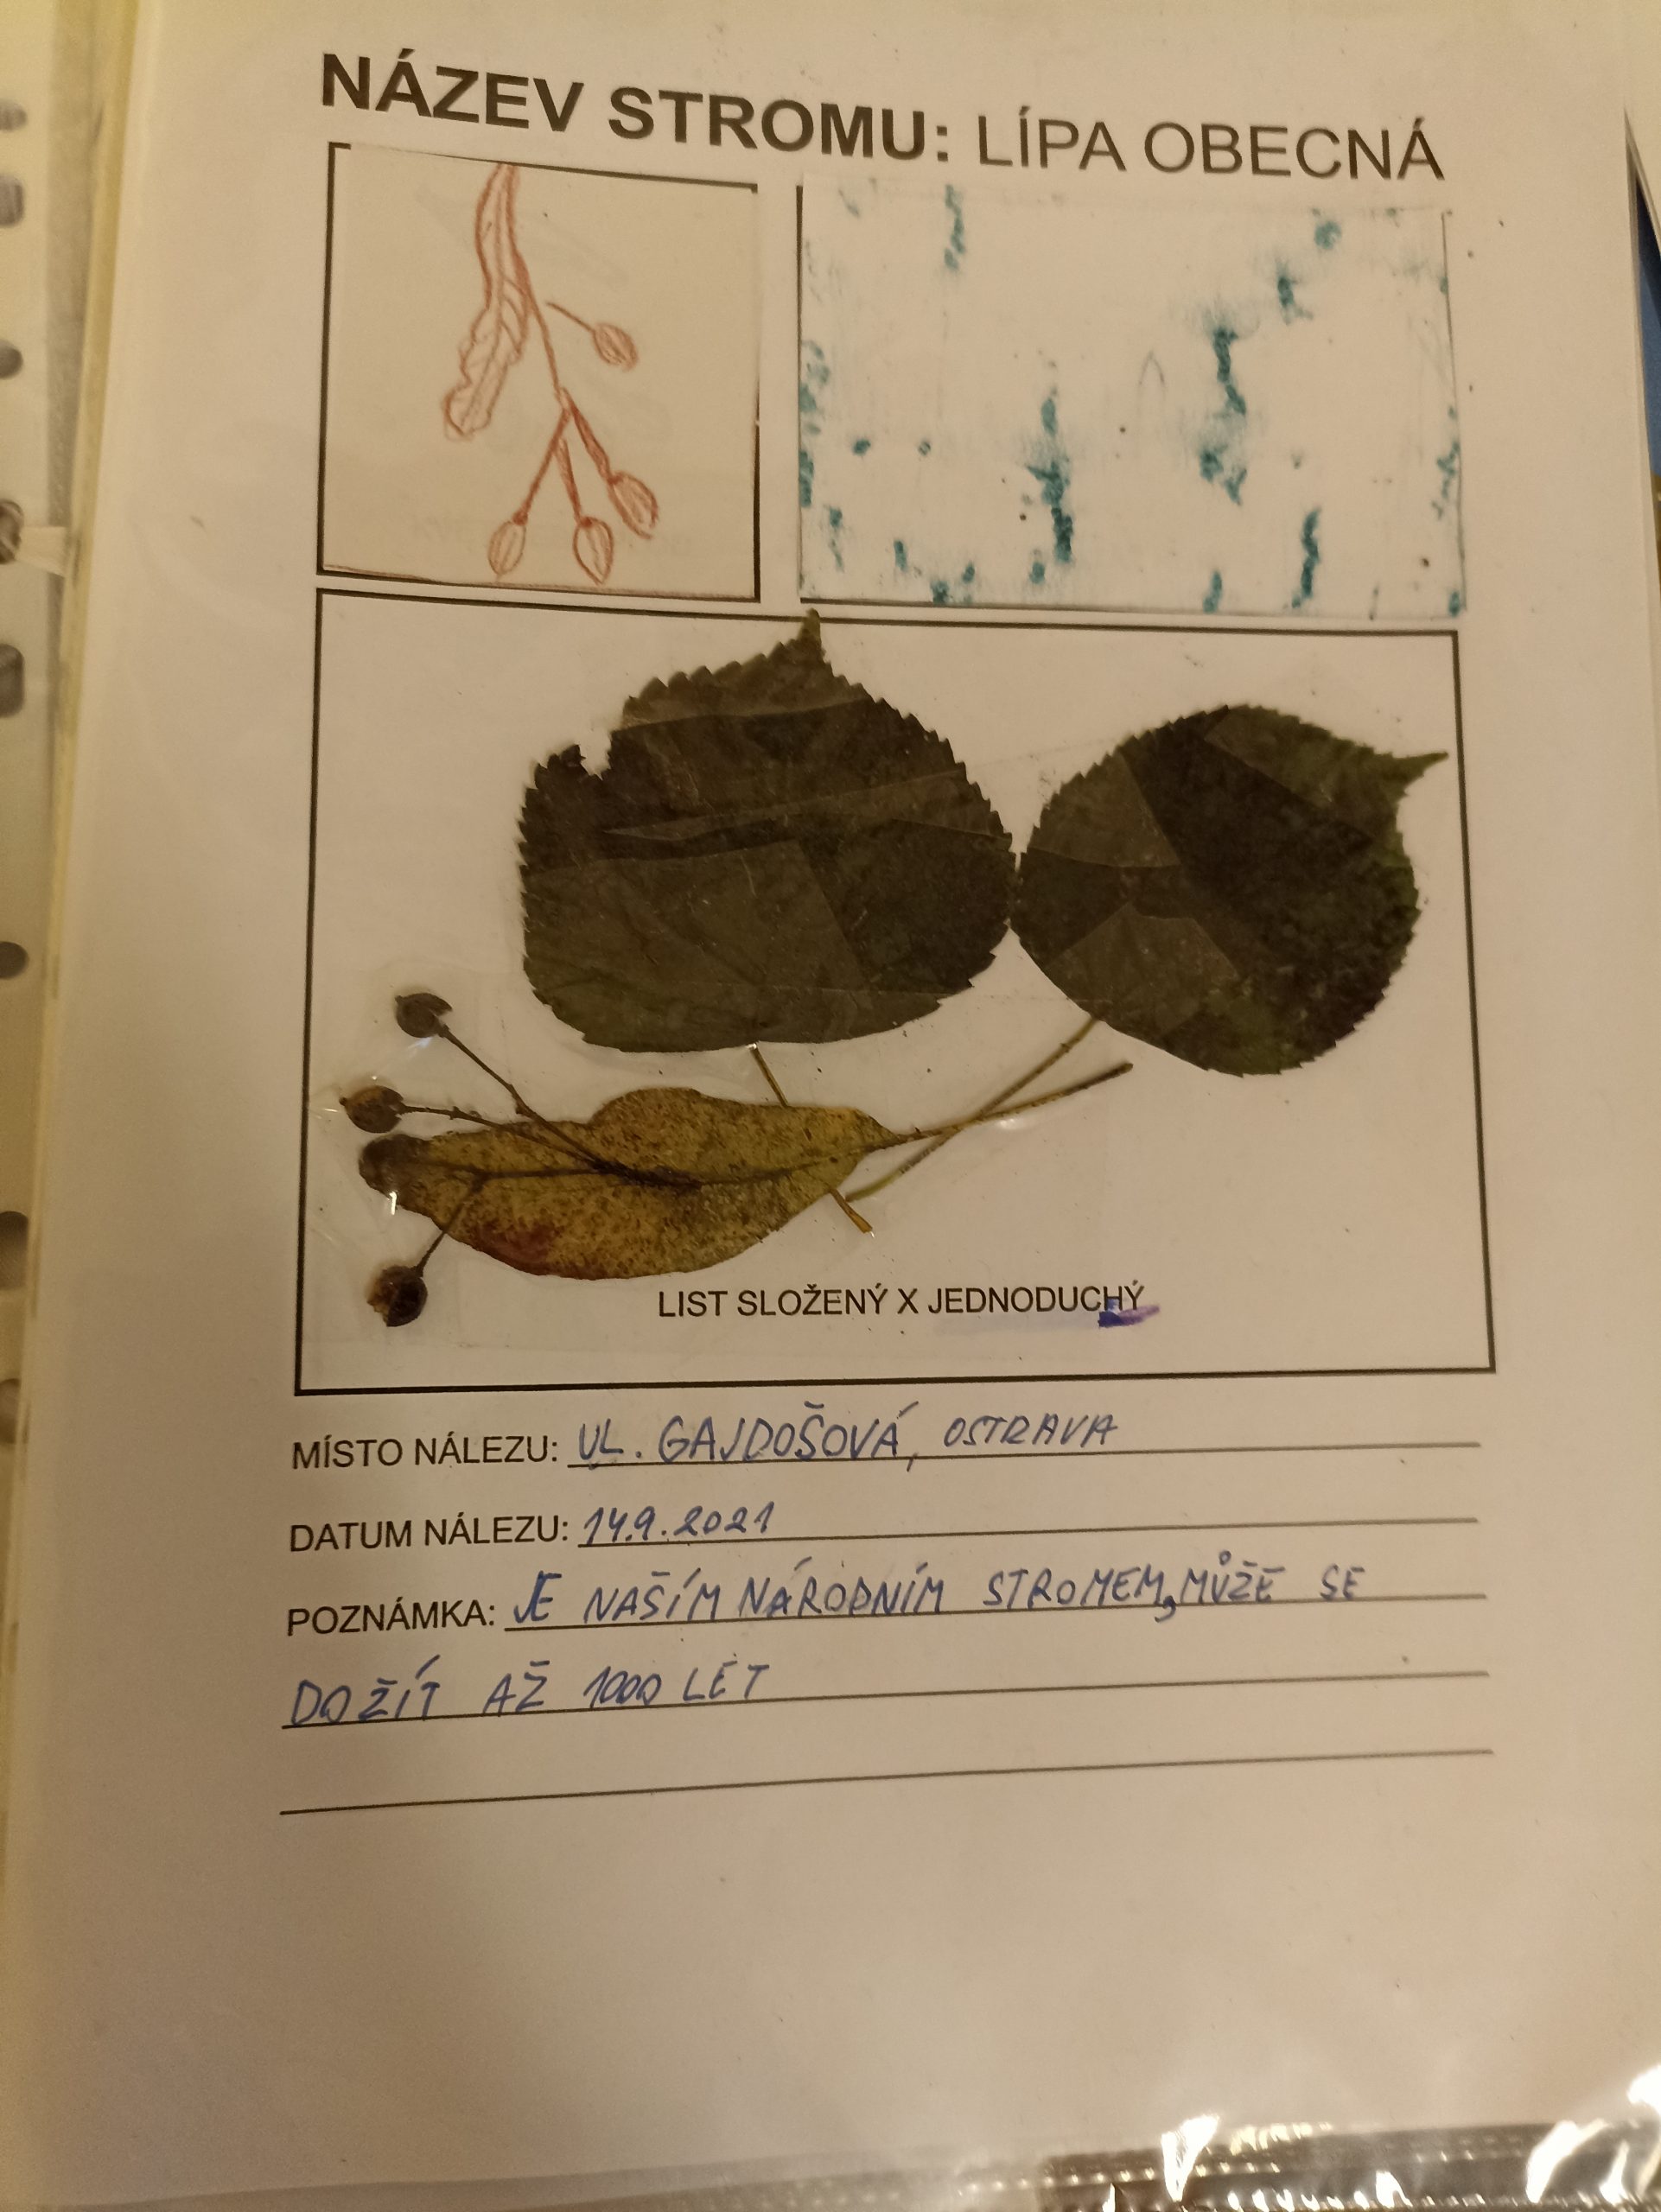 NÁZEV STROMU: LÍPA OBECNÁ
LIST SLOŽENÝ X JEDNODUCHÝ
MÍSTO NÁLEZU: UL. GAJDOŠOVÁ, OSTRAVA
DATUM NÁLEZU: 14.9.2021
POZNÁMKA: JE NAŠÍM NÁRODNÍM STROMEM, MŮŽE SE
DOŽÍT AŽ 1000 LET